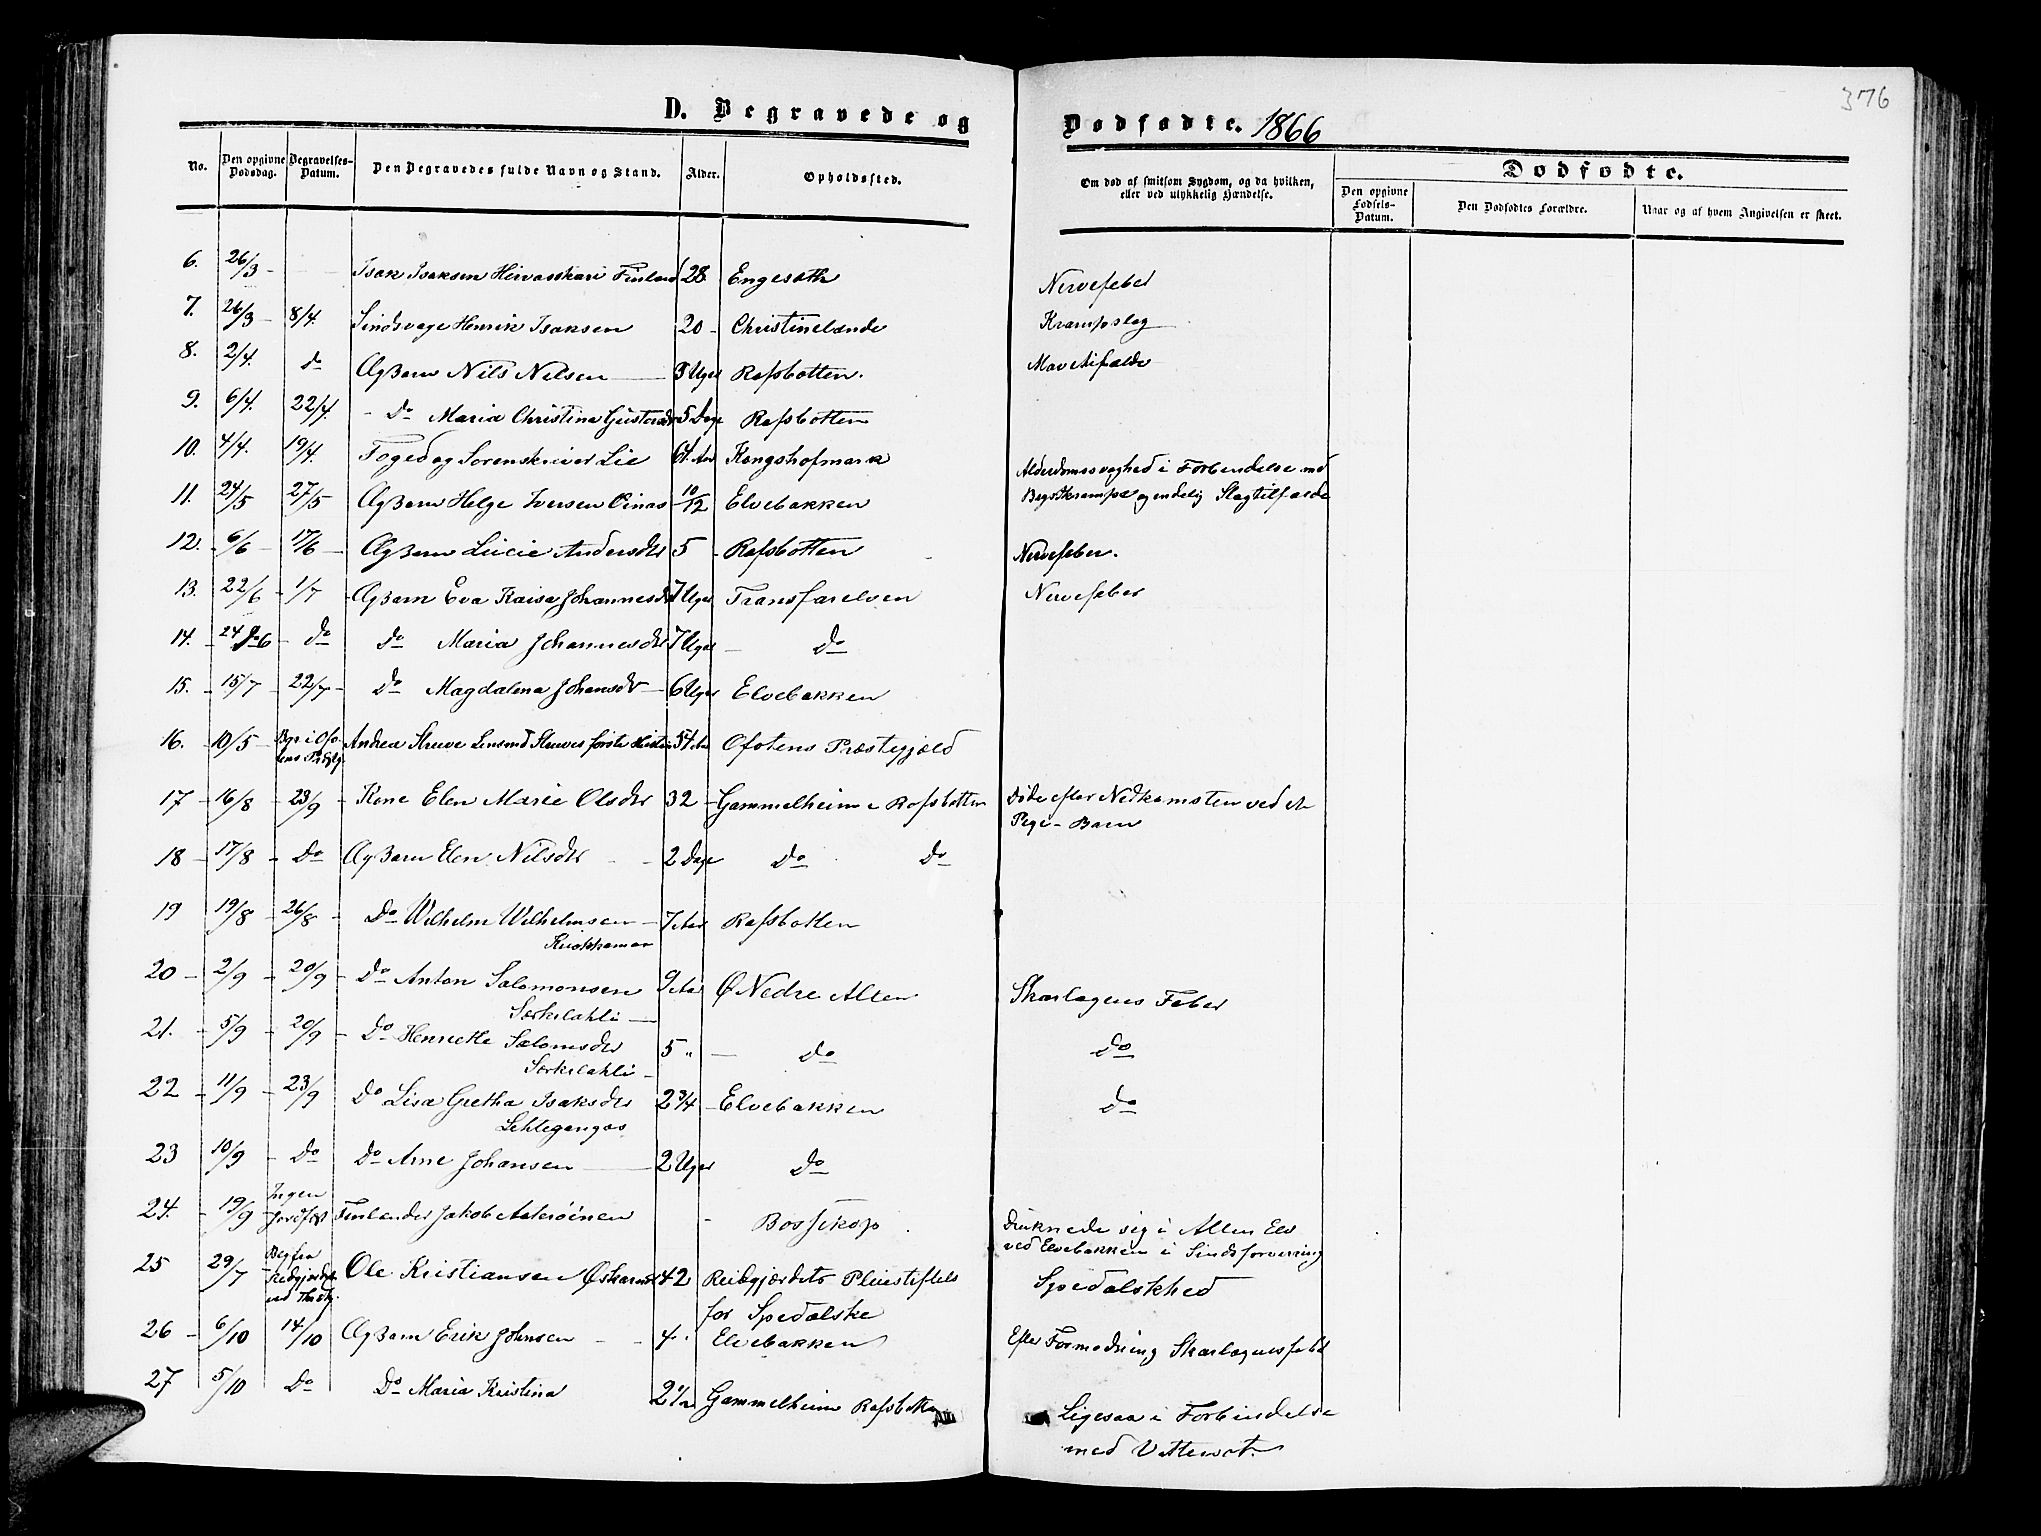 376
D. Begravede og Dødfødte. 1866
No. Den opgivne Dødsdag. Begravelses-Datum. Den Begravedes fulde Navn og Stand. Alder. Opholdssted. Om død af smitsom Sygdom, og da hvilken, eller ved ulykkelig Hændelse. Dødfødte.
Den opgivne Fødsels-Datum. Den Dødfødtes Forældre. Naar og af hvem Angivelsen er skeet.
6. 26/3 - Isak Isaksen Hirvasskari Finland 28 Engesøth Nervefeber
7. 26/3 - 8/4. Sindsvage Henrik Isaksen 20 - Christinelunde Krampslag
8. 2/4. do ÆgBarn Nils Nilsen 3 Uger Rafsbotten.
9. 6/4. 22/4. - Do Maria Christina 5 Dage Rafsbotten
10. 4/4. 19/4. Foged og Sorenskriver Lie 64 Aar Kongshofmark Alderdomssvaghed i Forbindelse med
11. 24/5 27/5 ÆgBarn Helge Iversen Oinas 10/12 Elvebakken Brystkrampe og endelig Slagtilfælde
12. 6/6 - 17/6 - ÆgBarn Lucie Andersdtr 5 - Rafsbotten Nervefeber.
13. 22/6 - 1/7 - ÆgBarn Eva Kaisa Johannesdtr 7 Uger Transfarelven Nervefeber
14. 24/6 - do Do Maria Johannesdtr 7 Uger - Do
15. - 15/7 - 22/7 - Do Magdalena Johansdtr - 6 Uger Elvebakken
16. - 10/5 - Begr i Ofotens Prgjld. Andrea Struve Lensmd Struves første Hustru 34 Aar Ofotens Præstegjæld
17 - 16/8 - 23/9 - Kone Elen Marie Olsdtr 32 - Gammelheim i Rafsbotten Døde efter Nedkomsten ved et
Pige-Barn
18 - 17/8 - Do ÆgBarn Elen Nilsdtr - - 2 Dage Do Do
19 19/8 - 26/8 - Do Wilhelm Wilhelmsen - 7 Aar Rafsbotten
20 - 2/9 - 20/9 - Do Anton Salomonsen 9 Aar Ø Nedre Alten Skarlagens Feber
Særkilahti -
21. - 5/9 - 20/9 - Do Henriette Salomsdtr 5 " - Do Do
Særkilahti -
22 - 11/9 - 23/9 Do Lisa Gretha Isaksdtr 2 3/4 - Elvebakken Do
23 10/9 - Do Do Arne Johansen - 2 Uger Do
24. - 19/9 - Ingen Jordfæst Finlænder Jakob - Bossekop. Druknede sig i Alten Elv
ved Elvebakken i Sindsforvirring
25 29/7 Begr fra Ole Kristiansen 42 Reitgjærdets Pleiestiftels Spedalskhed
for Spedalske
26 - 6/10 14/10 ÆgBarn Erik Johnsen - - 4 " Elvebakken Efter Formodning Skarlagensfeber
27 5/10 Do Do Maria Kristina 2 1/2 Gammelheim Rafsbotten Ligesaa i Forbindelse
med Vattersot.